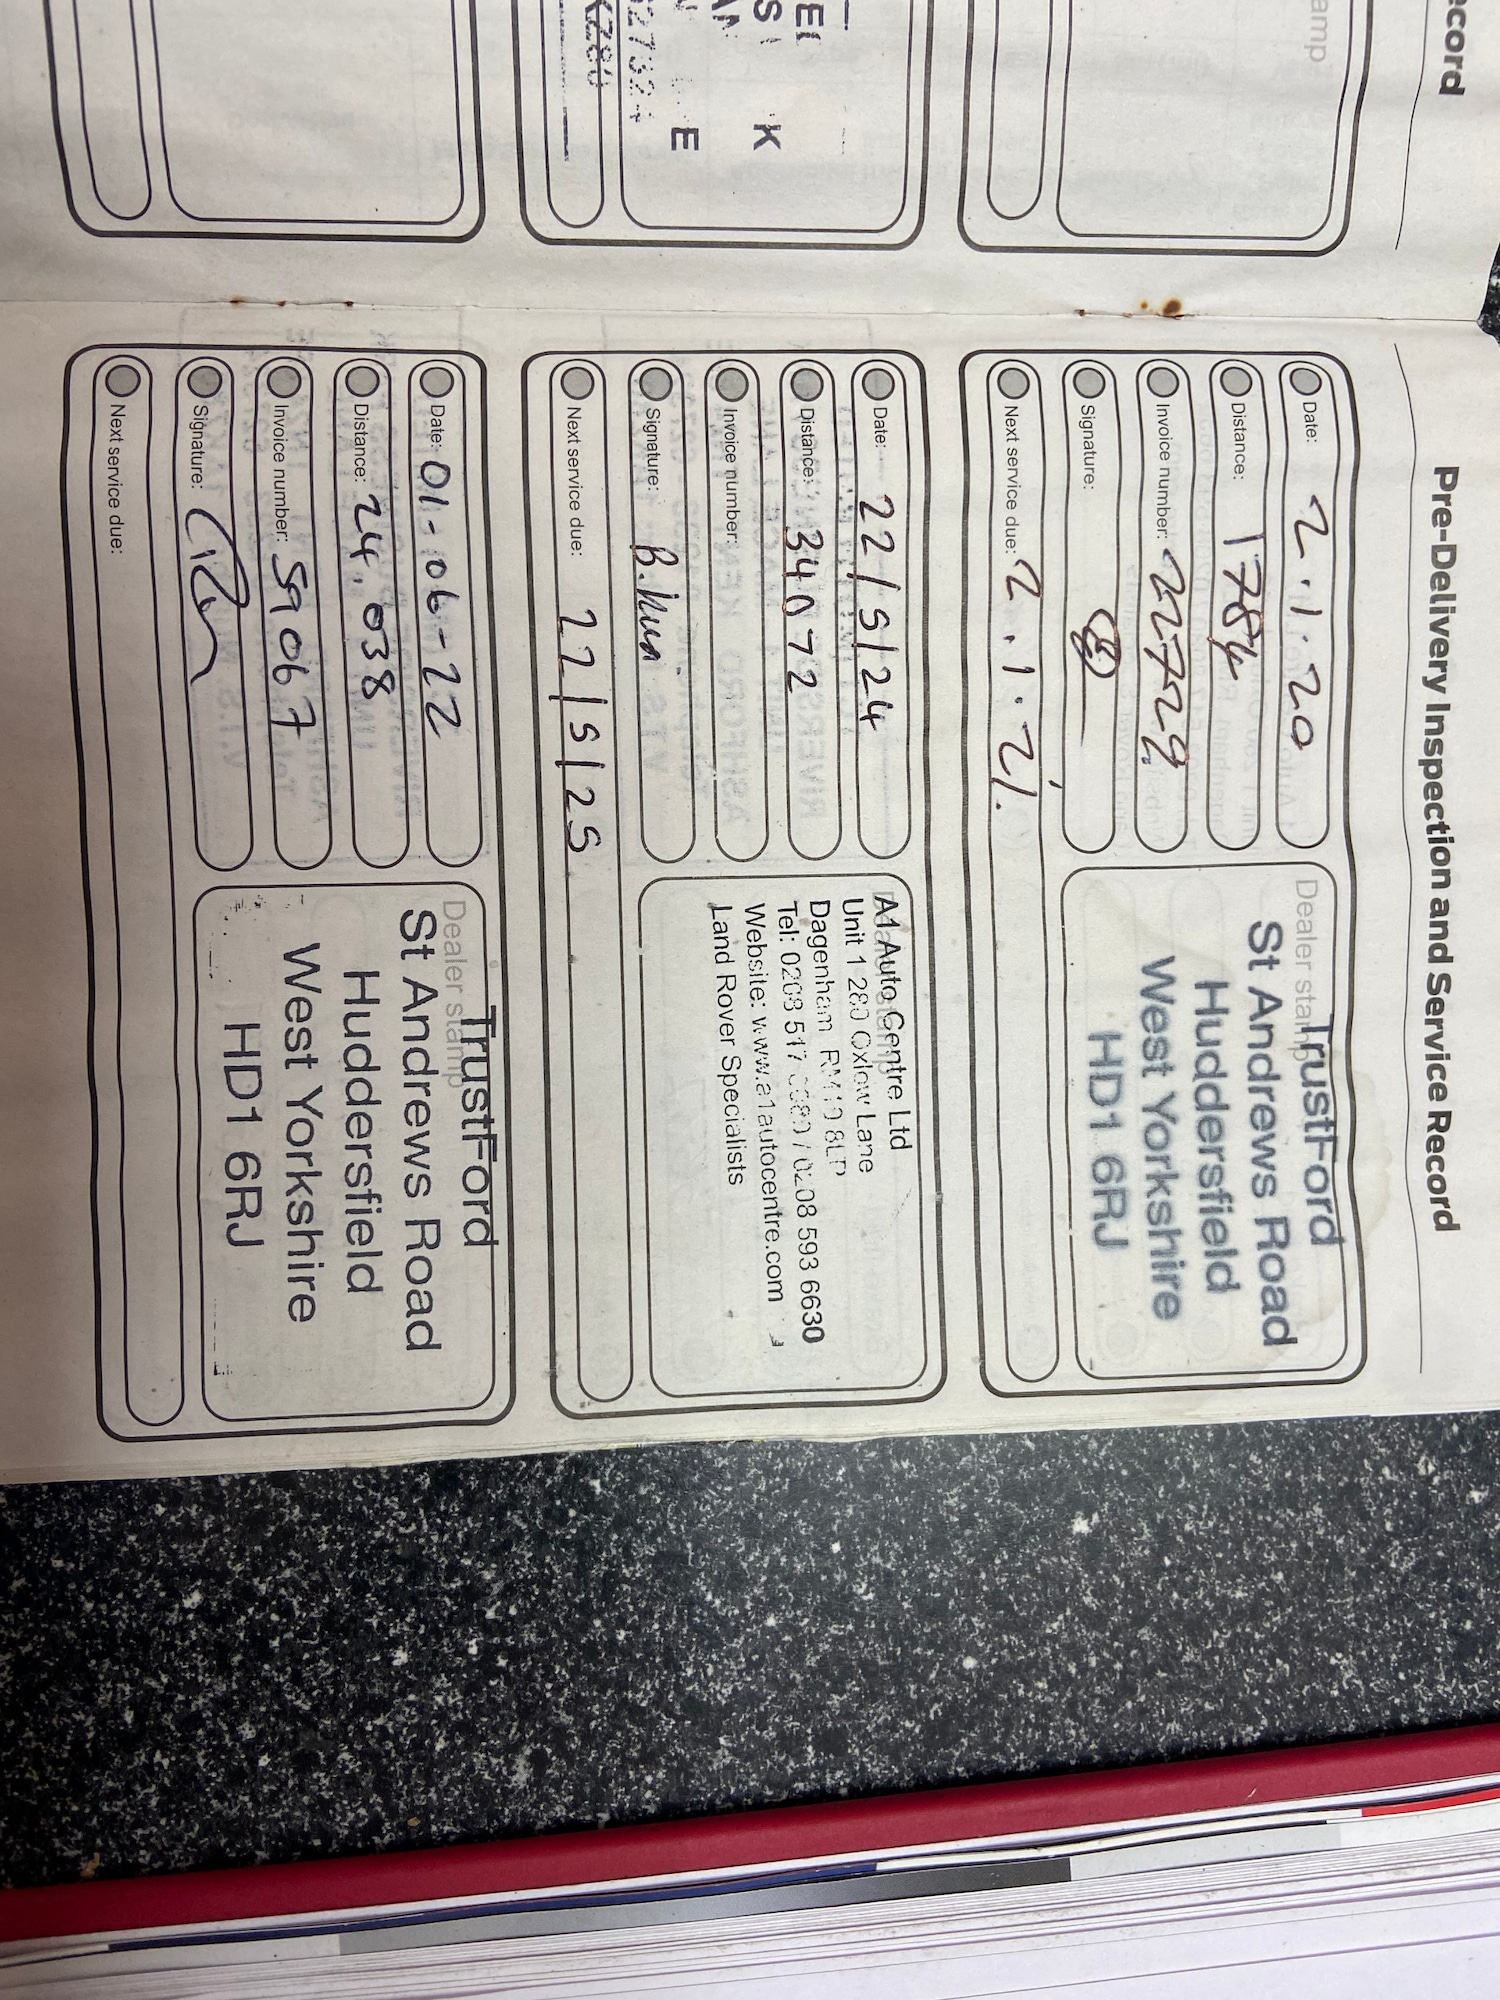 ecord
amp
EL
S K
AN
N E
02732
K280
Pre-Delivery Inspection and Service Record
Date: 2.1.20
Distance: 1784
Invoice number: 22729
Signature:
Next service due: 2.1.21.
Dealer stamp
TrustFord
St Andrews Road
Huddersfield
West Yorkshire
HD1 6RJ
Date: 22/5/24
Distance: 34072
Invoice number:
Signature:
Next service due: 22/5/25
Dealer stamp
A1 Auto Centre Ltd
Unit 1 280 Oxlow Lane
Dagenham RM10 8LP
Tel: 0208 517 / 0208 593 6630
Website: www.a1autocentre.com
Land Rover Specialists
Date: 01-06-22
Distance: 24.038
Invoice number: 59067
Signature:
Next service due:
Dealer stamp
TrustFord
St Andrews Road
Huddersfield
West Yorkshire
HD1 6RJ